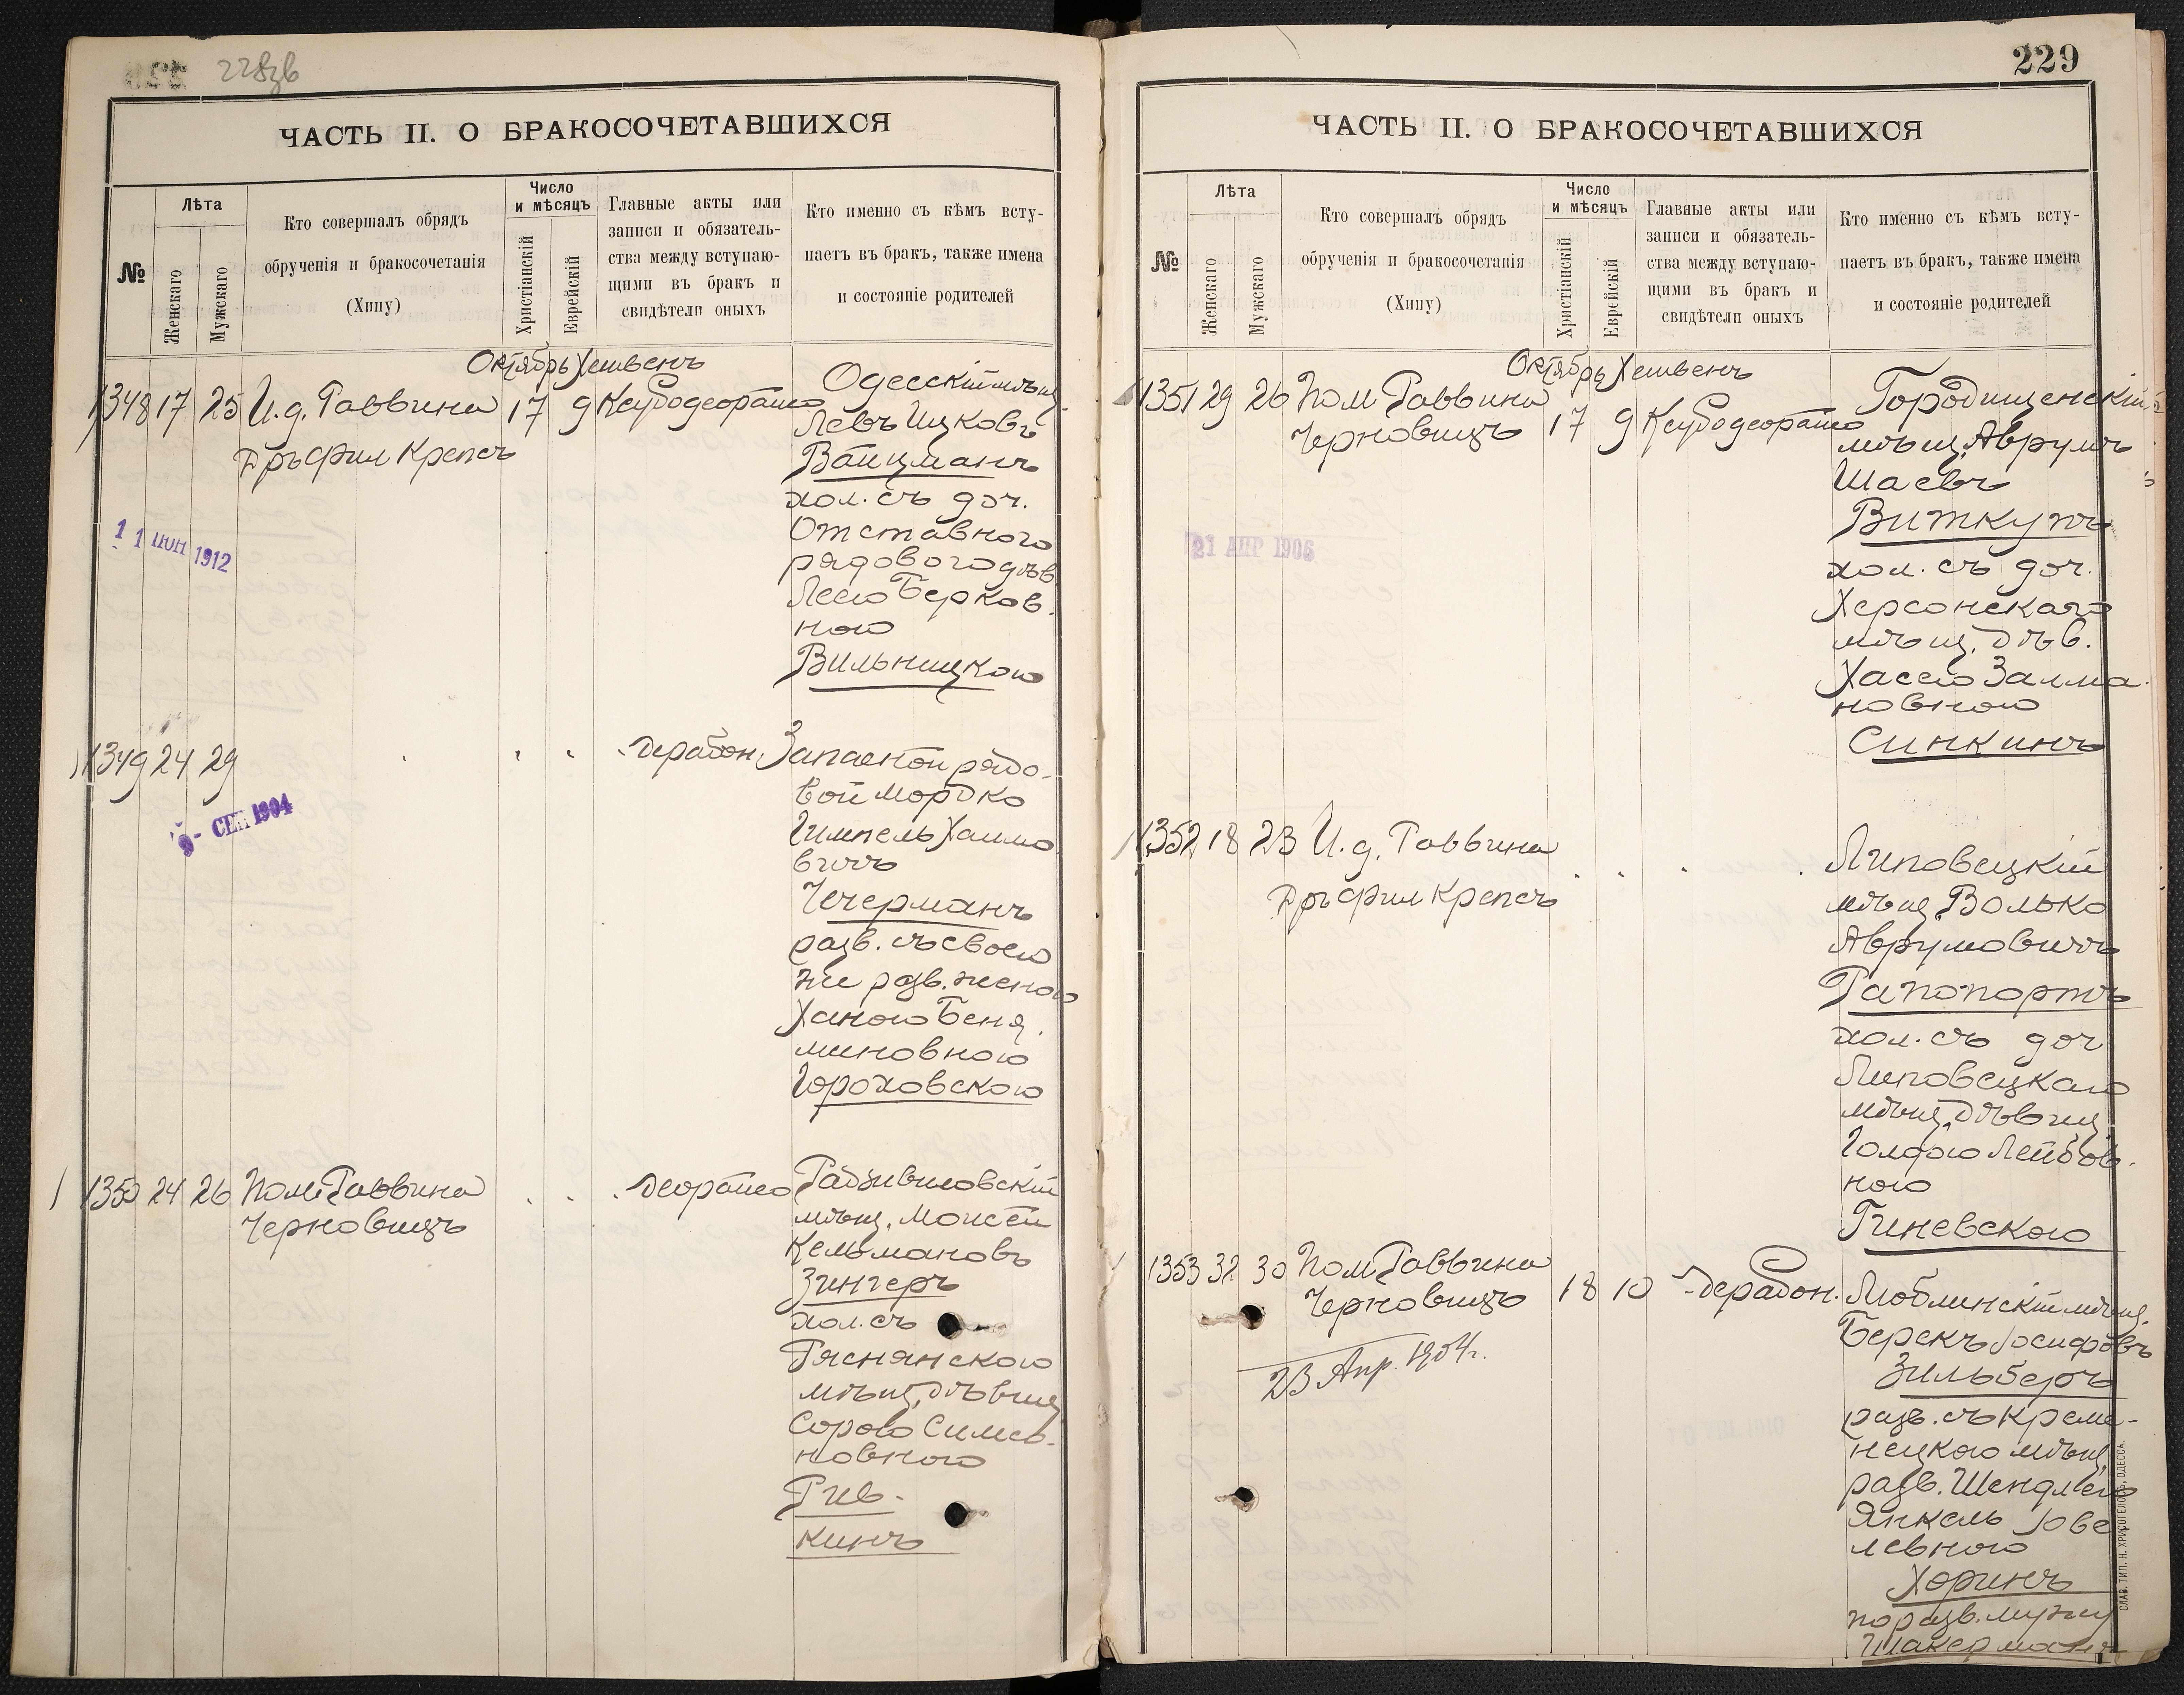 228зв
ЧАСТЬ II. О БРАКОСОЧЕТАВШИХСЯ
№
Лѣта
Женскаго
Мужскаго
Кто совершалъ обрядъ
обрученія и бракосочетанія
(Хипу)
Число
и мѣсяцъ
Христіанскій
Еврейскій
Главные акты или
записи и обязатель-
ства между вступаю-
щими въ бракъ и
свидѣтели оныхъ
Кто именно съ кѣмъ всту-
паетъ въ бракъ, также имена
и состояніе родителей
Октябрь Хешвенъ
1348 17 25 И.д. Раввина 17 9 Ксубодеорайсо
Д-ръ Фил Крепсъ
Одесскій мѣщ.
Левъ Ицковъ
Вайцманъ
хол. съ доч.
Отставного
рядового дѣв.
Лею Берков.
ною
Вильницкою
11 ІЮН 1912
1349 24 29 Дерабон. Запасной рядо-
вой Мордко
Гимпель Хаимо
вичъ
Чечерманъ
разв. съ своею
же разв. женою
Ханою Беня.
миновною
Гороховскою
9- СЕН 1904
1350 24 26 Пом. Раввина Деорайсо
Черновицъ
Радзивиловскій
мѣщ. Моисей
Кельмановъ
Зингеръ
хол. съ
Ряснянскою
мѣщ. дѣвиц
Сорою Симео-
новною
Рив-
кинъ
229
ЧАСТЬ II. О БРАКОСОЧЕТАВШИХСЯ
№
Лѣта
Женскаго
Мужскаго
Кто совершалъ обрядъ
обрученія и бракосочетанія
(Хипу)
Число
и мѣсяцъ
Христіанскій
Еврейскій
Главные акты или
записи и обязатель-
ства между вступаю-
щими въ бракъ и
свидѣтели оныхъ
Кто именно съ кѣмъ всту-
паетъ въ бракъ, также имена
и состояніе родителей
Октябрь Хешвенъ
1351 29 26 Пом Раввина 17 9 Ксубодеорайсо
Черновицъ
Городищенскій
мѣщ. Аврумъ
Шаевъ
Виткупъ
хол. съ доч.
Херсонскаго
мѣщ. дѣв.
Хассею Залма.
новною
Синкинъ
21 АПР 1906
1352 18 23 И.д. Раввина
Д-ръ Фил Крепсъ
Липовецкій
мѣщ. Волько
Аврумовичъ
Рапопортъ
хол. съ доч
Липовецкаго
мѣщ. дѣвиц
Голдою Лейбов.
ною
Гиневскою
1353 32 30 Пом Раввина 18 10 Дерабон.
Черновицъ
Люблинскій мѣщ.
Берекъ Іосифовъ
Зильберъ
разв. съ Креме-
нецкою мѣщ.
разв. Шендлею
Янкель Іове
левною
Хоринъ
по разв. мужу
Шакерманъ
23 Апр. 1904 г.
СЛАВ. ТИП. Н. ХРИСОГЕЛОСЪ, ОДЕССА.